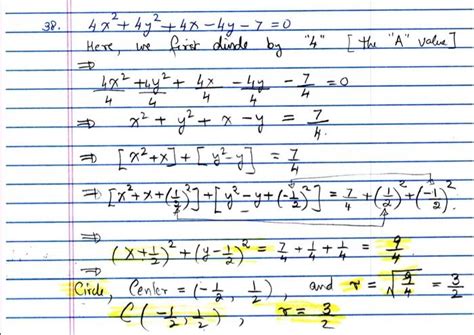 38. 4x² + 4y² + 4x - 4y - 7 = 0
Here, we first divide by "4" [the "A" value]
⇒
4x²/4 + 4y²/4 + 4x/4 - 4y/4 - 7/4 = 0
⇒ x² + y² + x - y = 7/4.
⇒ [x² + x] + [y² - y] = 7/4
⇒ [x² + x + (1/2)²] + [y² - y + (-1/2)²] = 7/4 + (1/2)² + (-1/2)².
⇒ (x + 1/2)² + (y - 1/2)² = 7/4 + 1/4 + 1/4 = 9/4
⇒
Circle, Center = (-1/2, 1/2), and r = √9/4 = 3/2
C(-1/2, 1/2), r = 3/2